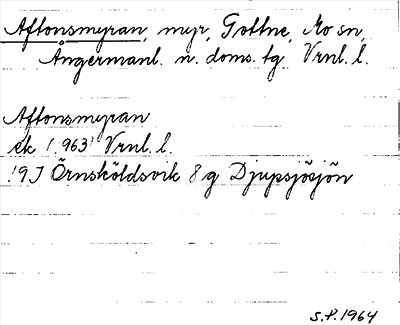 Aftonsmyran, myr, Gottne, Mo sn,
Ångermanl. n. doms. tg. Vrnl. l.
Aftonsmyran
ek 1963 Vrnl. l.
19J Örnsköldsvik 8g Djupsjösjön
S.P. 1964